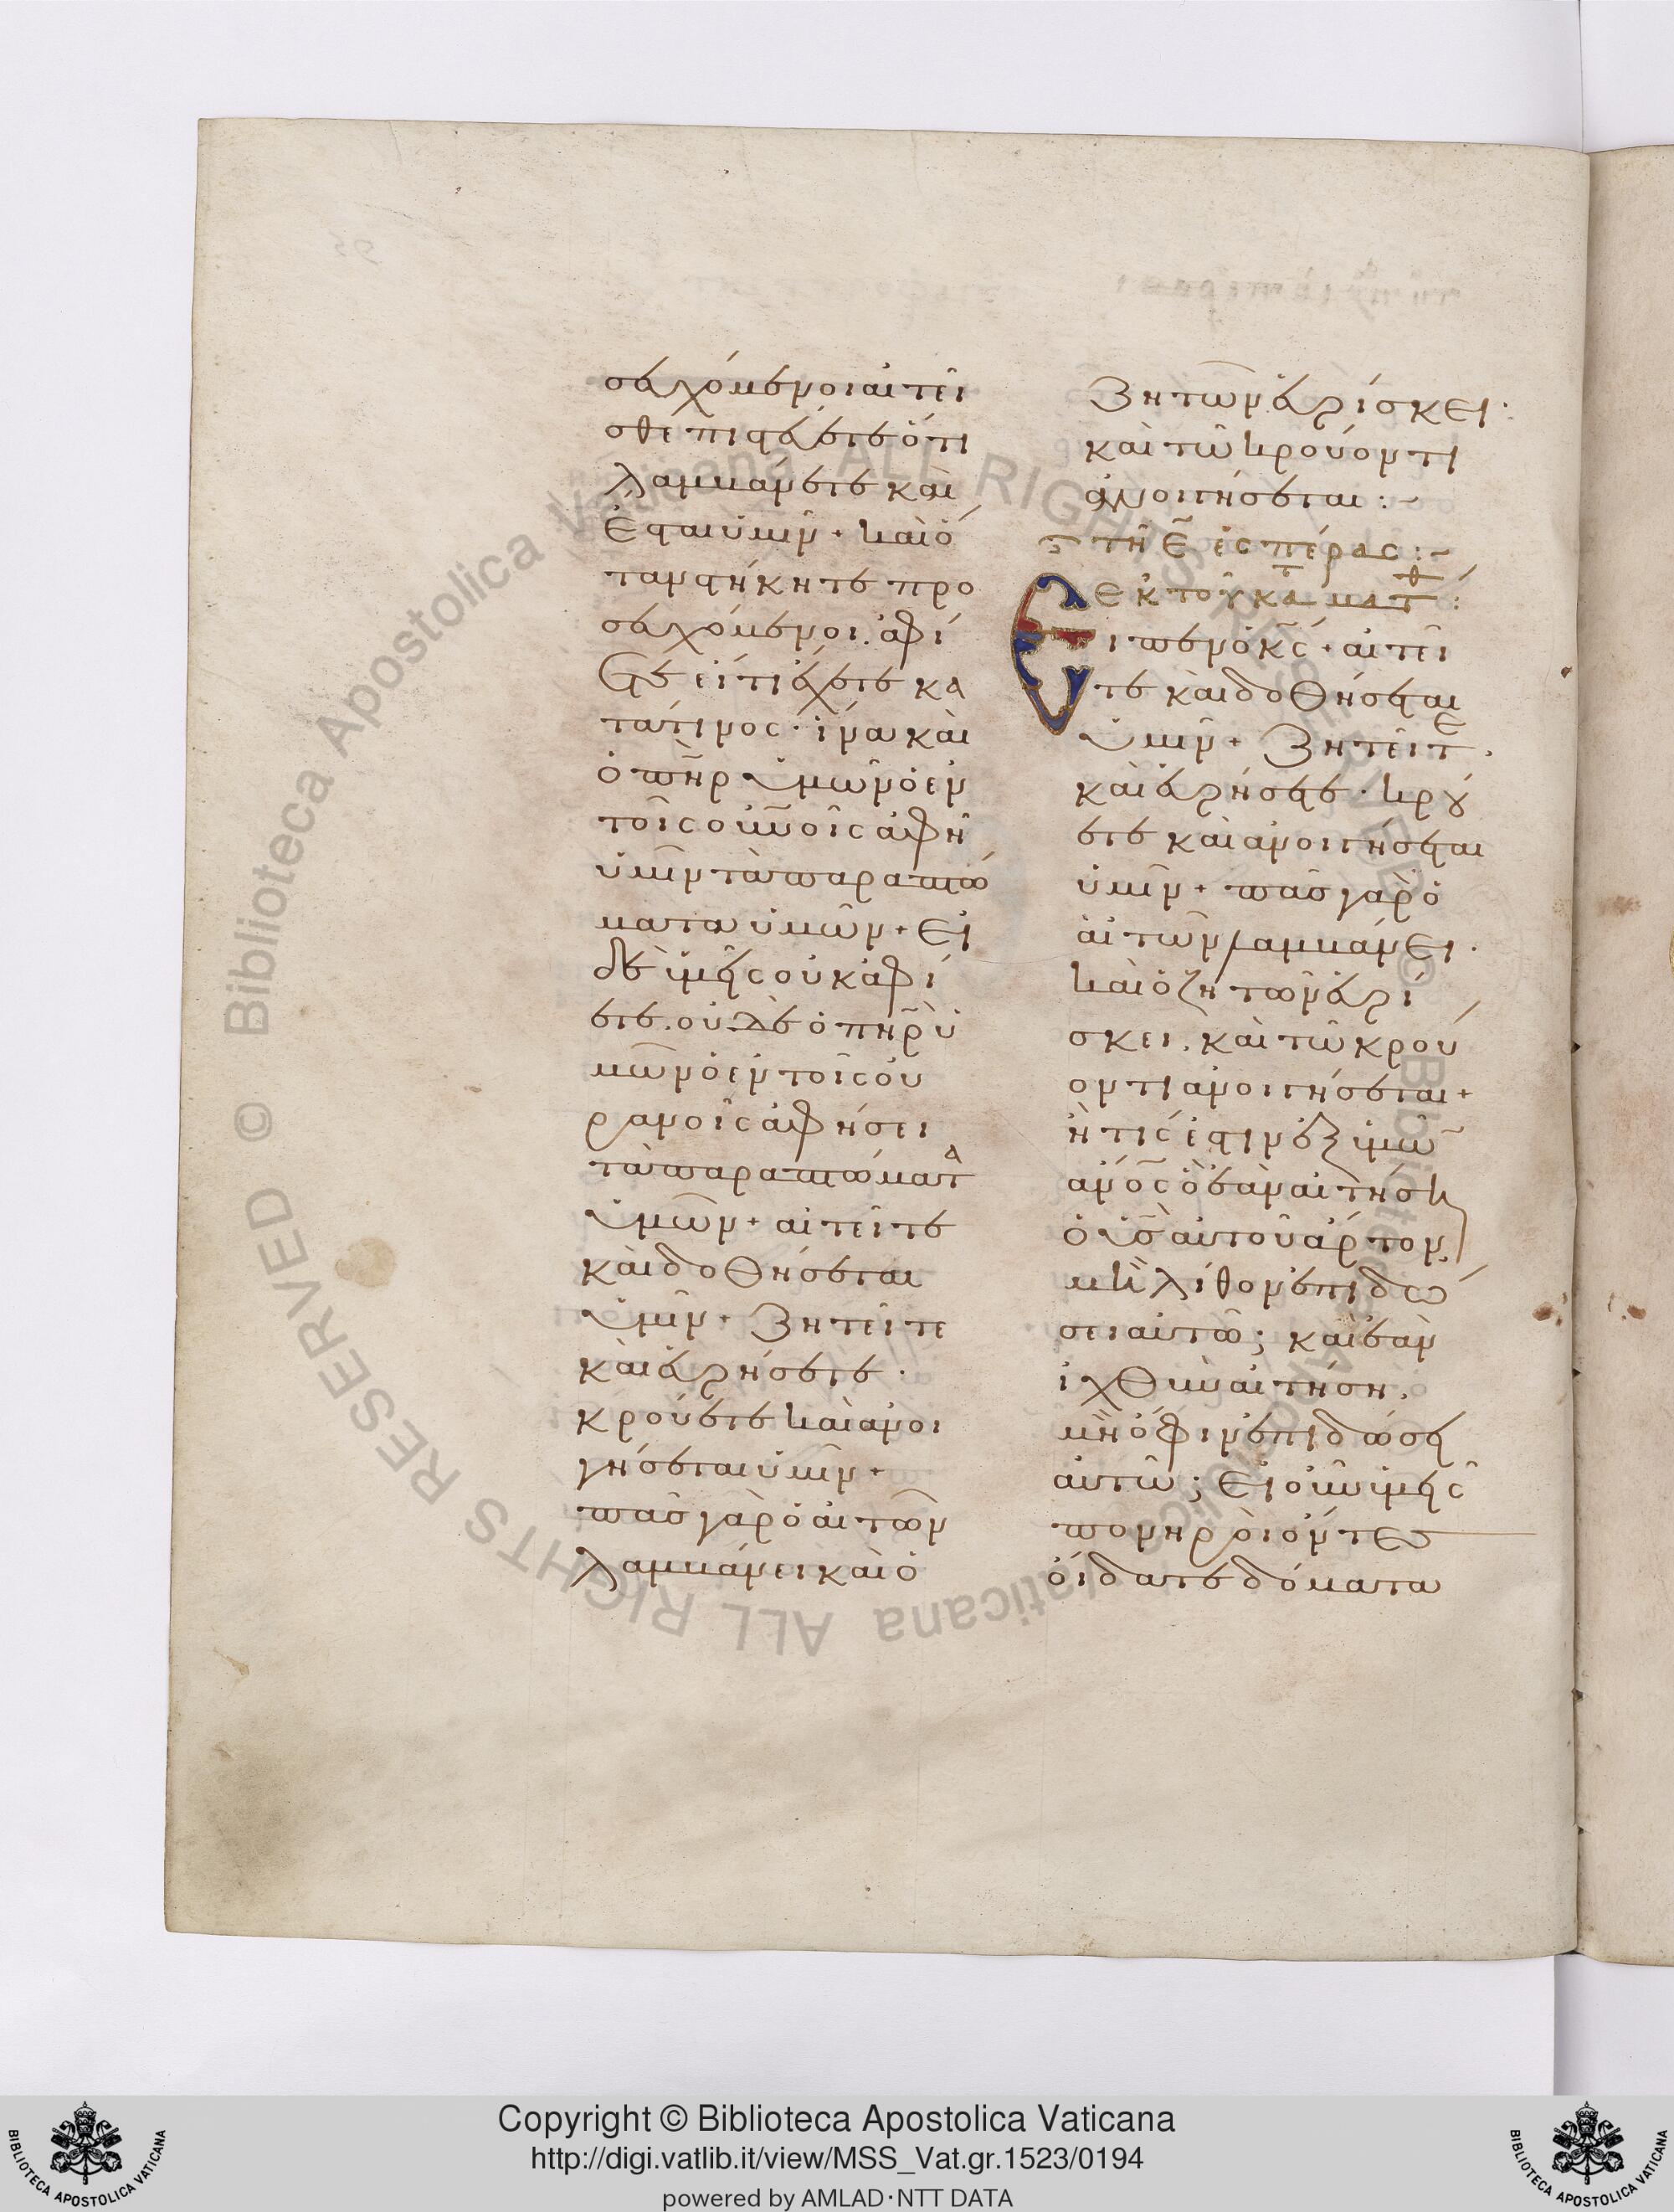 σευχόμενοι αἰτεῖ
σθε πιστεύετε ὅτι
λαμβάνετε καὶ
ἔσται ὑμῖν + καὶ ὅ
ταν στήκητε προ
σευχόμενοι. ἀφί
ετε εἴ τι ἔχετε κα
τά τινος · ἵνα καὶ
ὁ πη̃ρ ὑμῶν ὁ ἐν
τοῖς οὐνοῖς ἀφῆ
ὑμῖν τὰ παραπτώ
ματα ὑμῶν + εἰ
δὲ ὑμεῖς οὐκ ἀφί
ετε. οὐδὲ ὁ πη̃ρ ὑ
μῶν ὁ ἐν τοῖς οὐ
ρανοῖς ἀφήσει
τὰ παραπτώματ
ὑμῶν + αἰτεῖτε
καὶ δοθήσεται
ὑμῖν + ζητεῖτε
καὶ εὑρήσετε ·
κρούετε καὶ ἀνοι
γήσεται ὑμῖν +
πᾶς γὰρ ὁ αἰτῶν
λαμβάνει καὶ ὁ
ζητῶν εὑρίσκει ·
καὶ τῶ κρούοντι
ἀνοιγήσεται :~
τῆ ε̃ ἑσπέρας :~
ἐκ τοῦ κατὰ ματθ :
Εἶπεν ὁ κς̃ + αἰτεῖ
τε καὶ δοθήσεται
ὑμῖν + ζητεῖτε.
καὶ εὑρήσετε · κρού
ετε καὶ ἀνοιγήσεται
ὑμῖν + πᾶς γὰρ ὁ
αἰτῶν λαμβάνει ·
καὶ ὁ ζητῶν εὑρί
σκει. καὶ τῶ κρού
οντι ἀνοιγήσεται +
ἢ τίς ἐστιν ἐξ ὑμῶ̃
ἀνο̃ς ὃ ἐὰν αἰτήση
ὁ ὑς̃ αὐτοῦ ἄρτον.
μὴ λίθον ἐπιδώ
σει αὐτῶ ; καὶ ἐὰν
ἰχθὺν αἰτήση.
μὴ ὄφιν ἐπιδώσει
αὐτῶ ; εἰ οὖν ὑμεῖς
πονηροὶ ὄντες
οἴδατε δόματα
Copyright © Biblioteca Apostolica Vaticana
http://digi.vatlib.it/view/MSS_Vat.gr.1523/0194
powered by AMLAD·NTT DATA
BIBLIOTECA APOSTOLICA VATICANA
BIBLIOTECA APOSTOLICA VATICANA
© Biblioteca Apostolica Vaticana ALL RIGHTS RESERVED
© Biblioteca Apostolica Vaticana ALL RIGHTS RESERVED